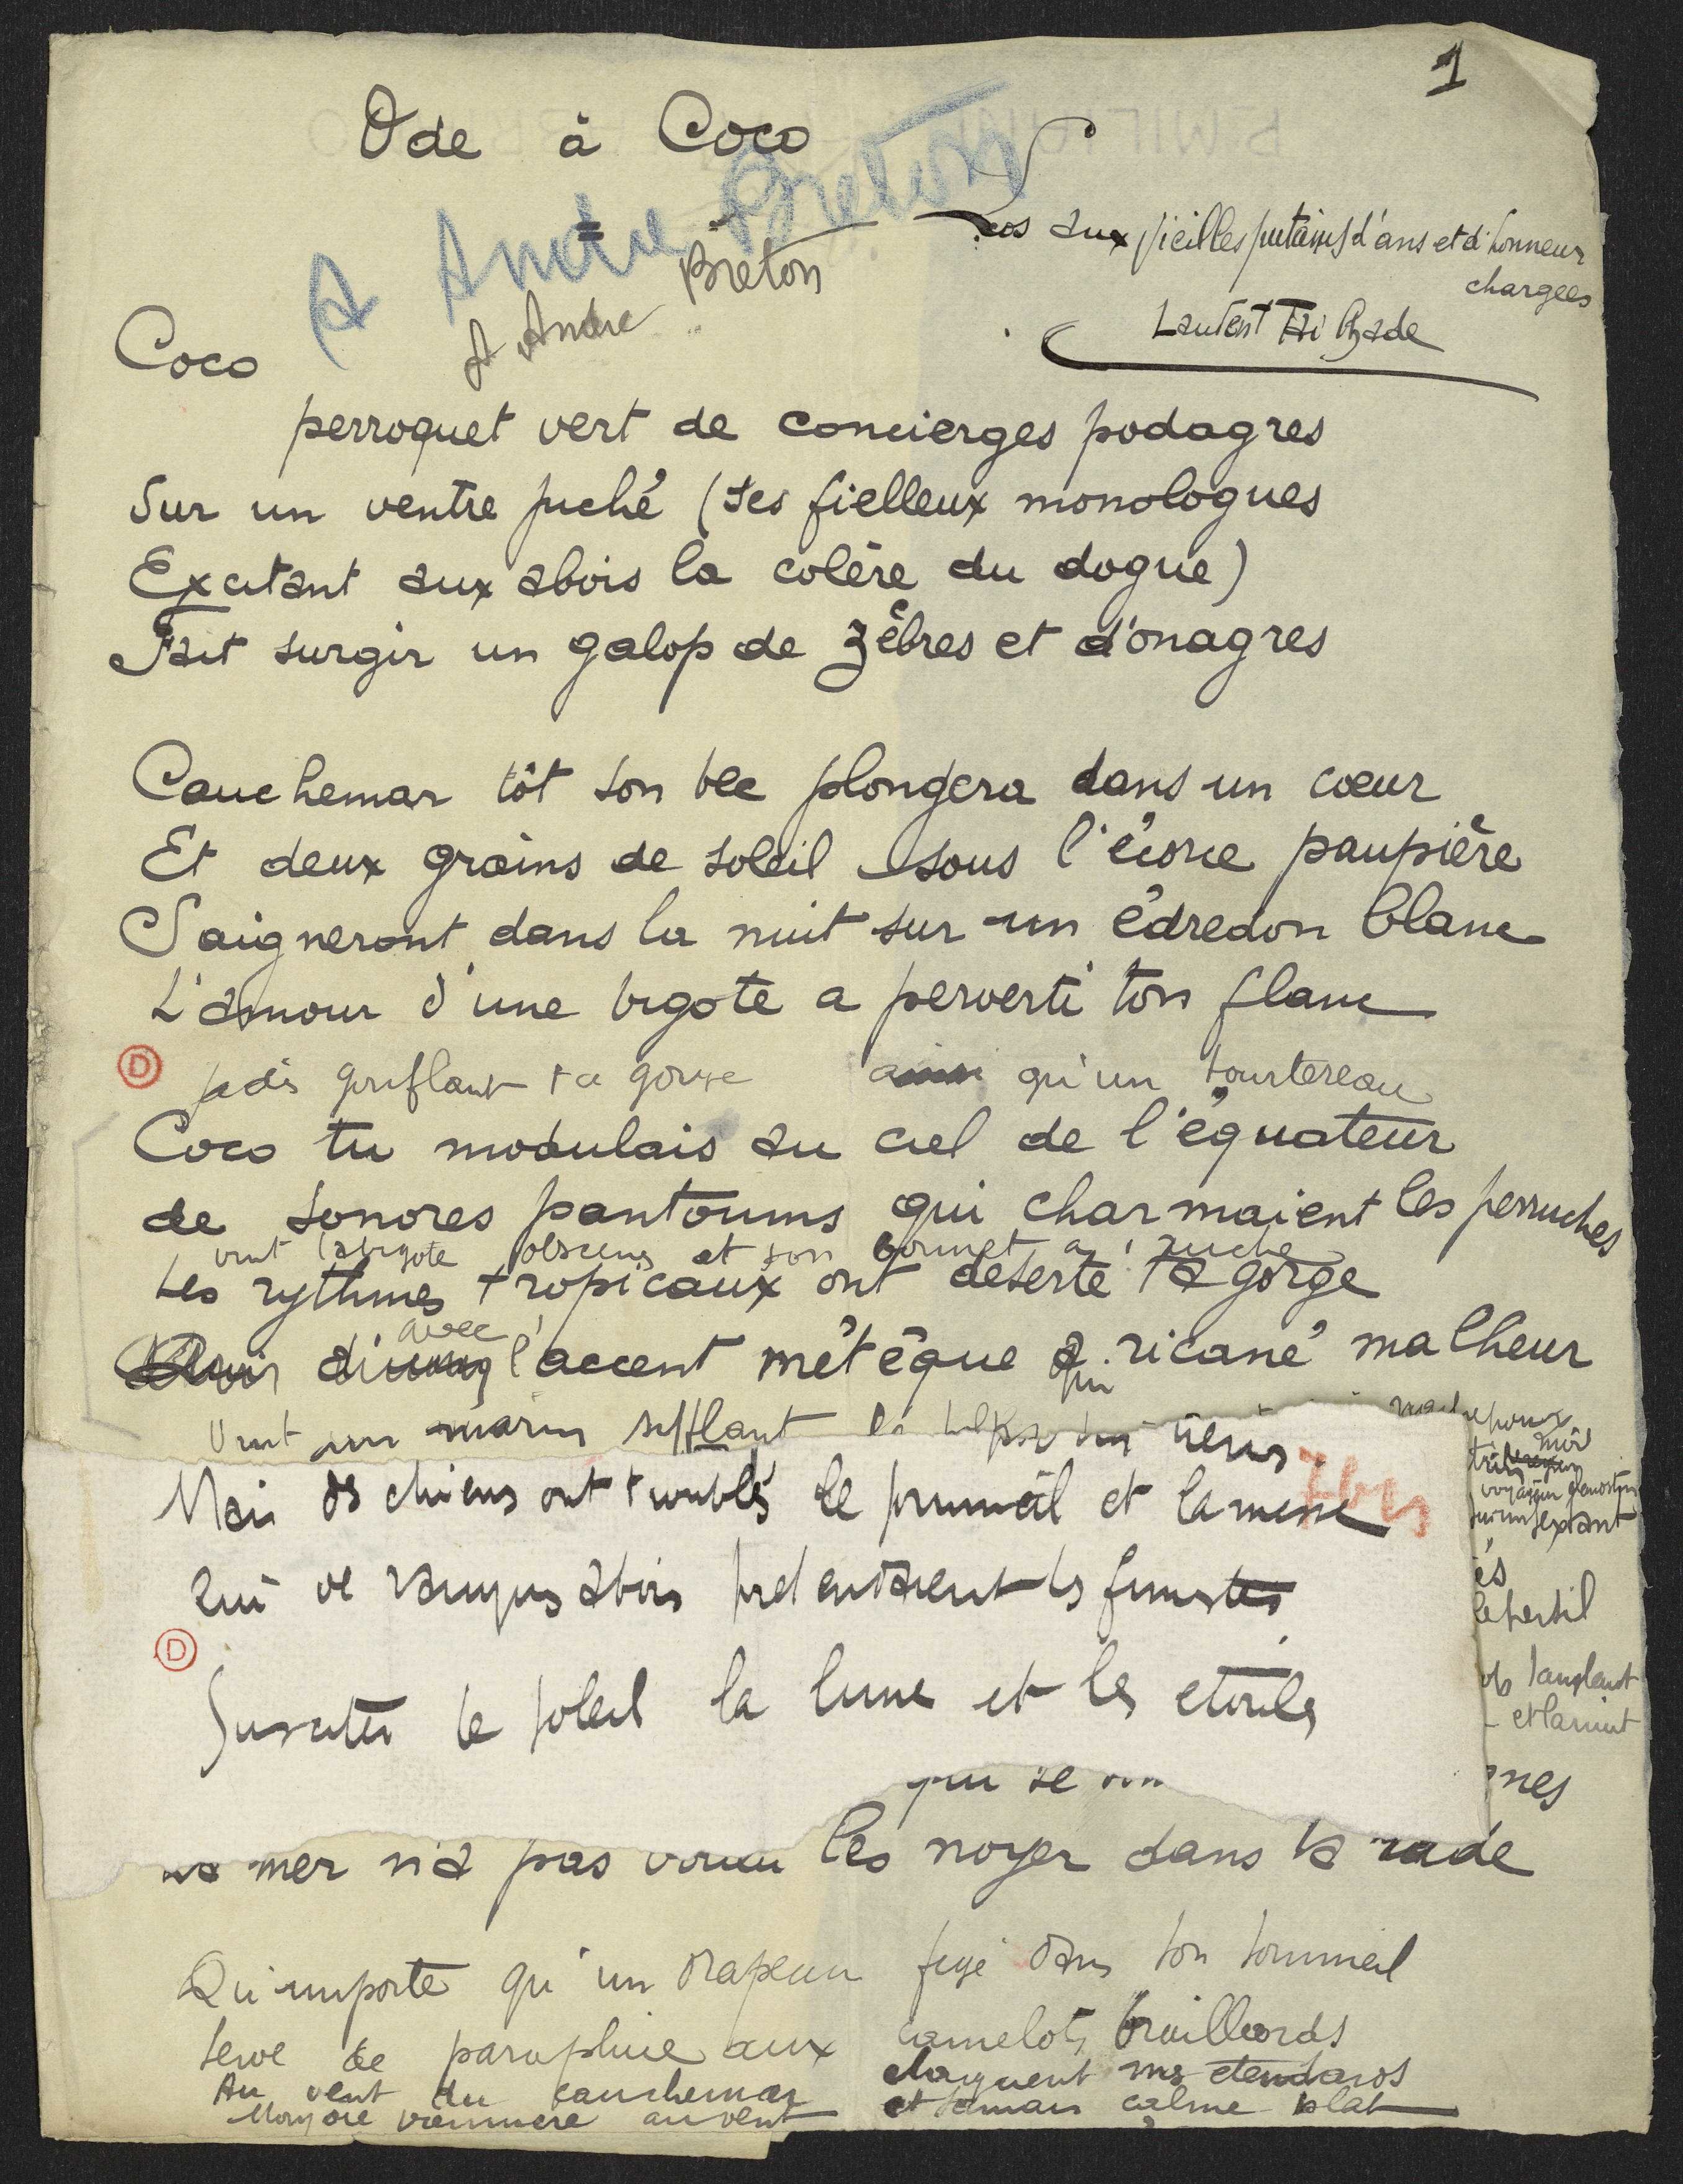 1
Ode à Coco
A André Breton
A André Breton
Los aux vieilles putains d'ans et d'honneur
chargées
Laurent Tailhade
Coco
perroquet vert de concierges podagres
Sur un ventre juché (ses fielleux monologues
Excitant aux abois la colère du dogue)
Fait surgir un galop de zèbres et d'onagres
Cauchemar tôt son bec plongera dans un cœur
Et deux grains de soleil sous l'écorce paupière
Saigneront dans la nuit sur un édredon blanc
L'amour d'une bigote a perverti ton flanc
D
jadis gonflant ta gorge ainsi qu'un tourtereau
Coco tu modulais au ciel de l'équateur
de sonores pantoums qui charmaient les perruches
vint la bigote obscène et son bonnet à ruche
Les rythmes tropicaux ont déserté ta gorge
avec l'accent métèque a ricané malheur
qui
Vint un marin sifflant la
Mais des chiens ont troublé le sommeil et la messe
7bis
Qui de rauques abois
D
le soleil la lune et les étoiles
sextant
le persil
sanglant
et la nuit
qui se
mer n'a pas voulu les noyer dans la rade
Qu'importe qu'un drapeau figé dans ton sommeil
Serve de parapluie aux camelots braillards
Au vent du cauchemar claquent mes étendards
au vent et jamais calme plat